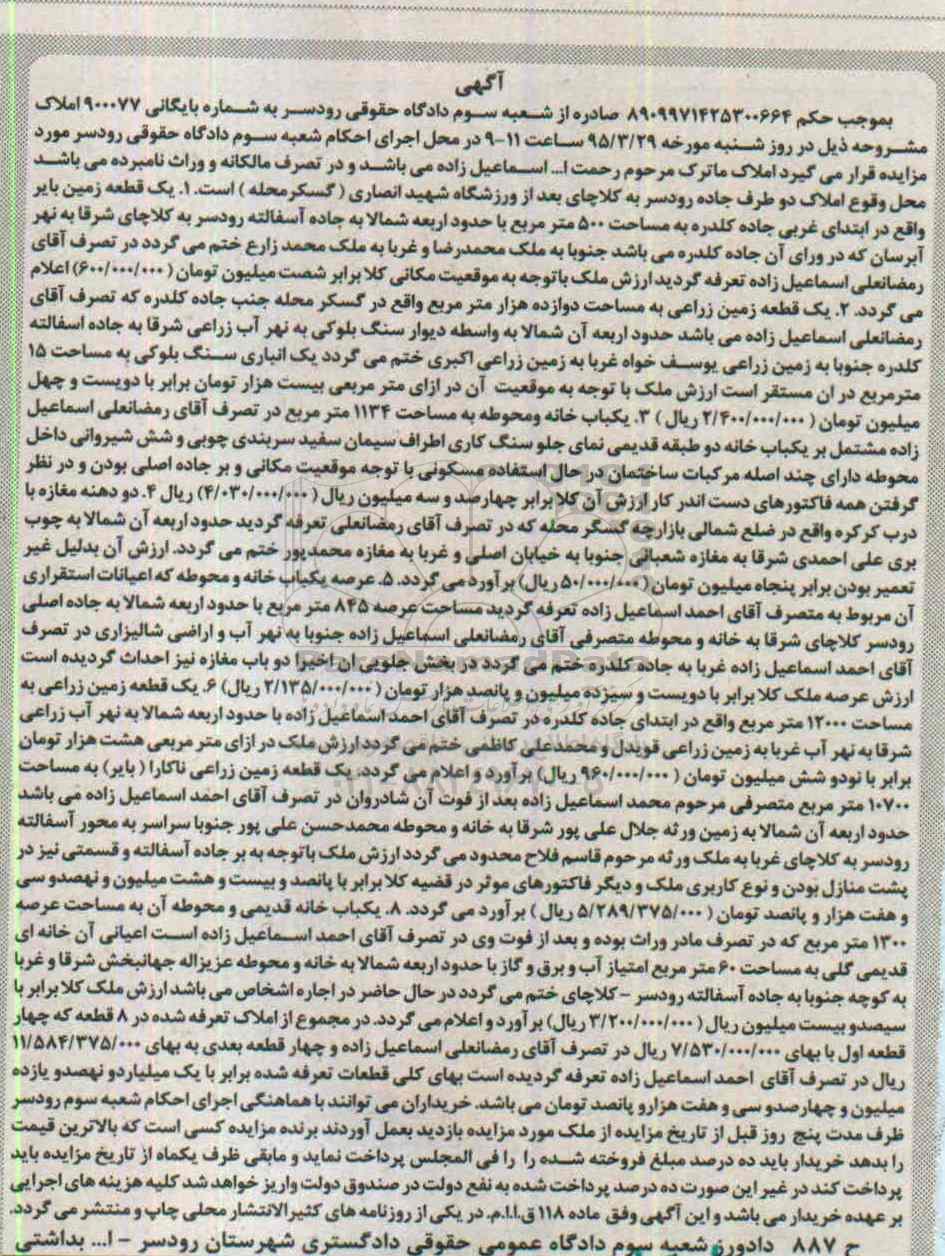 آگهی
بموجب حکم ۸۹۰۹۹۷۱۴۲۵۳۰۰۶۶۴ صادره از شعبه سوم دادگاه حقوقی رودسر به شماره بایگانی ۹۰۰۰۷۷ املاک
مشروحه ذیل در روز شنبه مورخه ۹۵/۳/۲۹ ساعت ۱۱-۹ در محل اجرای احکام شعبه سوم دادگاه حقوقی رودسر مورد
مزایده قرار می گیرد املاک ماترک مرحوم رحمت ا... اسماعیل زاده می باشد و در تصرف مالکانه و وراث نامبرده می باشد
محل وقوع املاک دو طرف جاده رودسر به کلاچای بعد از ورزشگاه شهید انصاری ( گسکرمحله ) است. ۱. یک قطعه زمین بایر
واقع در ابتدای غربی جاده کلدره به مساحت ۵۰۰ متر مربع با حدود اربعه شمالا به جاده آسفالته رودسر به کلاچای شرقا به نهر
آبرسان که در ورای آن جاده کلدره می باشد جنوبا به ملک محمدرضا و غربا به ملک محمد زارع ختم می گردد در تصرف آقای
رمضانعلی اسماعیل زاده تعرفه گردید ارزش ملک باتوجه به موقعیت مکانی کلا برابر شصت میلیون تومان ( ۶۰۰/۰۰۰/۰۰۰) اعلام
می گردد. ۲. یک قطعه زمین زراعی به مساحت دوازده هزار متر مربع واقع در گسکر محله جنب جاده کلدره که تصرف آقای
رمضانعلی اسماعیل زاده می باشد حدود اربعه آن شمالا به واسطه دیوار سنگ بلوکی به نهر آب زراعی شرقا به جاده اسفالته
کلدره جنوبا به زمین زراعی یوسف خواه غربا به زمین زراعی اکبری ختم می گردد یک انباری سنگ بلوکی به مساحت ۱۵
مترمربع در ان مستقر است ارزش ملک با توجه به موقعیت آن در ازای متر مربعی بیست هزار تومان برابر با دویست و چهل
میلیون تومان ( ۲/۴۰۰/۰۰۰/۰۰۰ ریال ) ۳. یکباب خانه ومحوطه به مساحت ۱۱۳۴ متر مربع در تصرف آقای رمضانعلی اسماعیل
زاده مشتمل بر یکباب خانه دو طبقه قدیمی نمای جلو سنگ کاری اطراف سیمان سفید سربندی چوبی و شش شیروانی داخل
محوطه دارای چند اصله مرکبات ساختمان در حال استفاده مسکونی با توجه موقعیت مکانی و بر جاده اصلی بودن و در نظر
گرفتن همه فاکتورهای دست اندر کار ارزش آن کلا برابر چهارصد و سه میلیون ریال ( ۴/۰۳۰/۰۰۰/۰۰۰) ریال ۴. دو دهنه مغازه با
درب کرکره واقع در ضلع شمالی بازارچه گسگر محله که در تصرف آقای رمضانعلی تعرفه گردید حدود اربعه آن شمالا به چوب
بری علی احمدی شرقا به مغازه شعبانی جنوبا به خیابان اصلی و غربا به مغازه محمدپور ختم می گردد. ارزش آن بدلیل غیر
تعمیر بودن برابر پنجاه میلیون تومان ( ۵۰/۰۰۰/۰۰۰ ریال) برآورد می گردد. ۵. عرصه یکباب خانه و محوطه که اعیانات استقراری
آن مربوط به متصرف آقای احمد اسماعیل زاده تعرفه گردید مساحت عرصه ۸۴۵ متر مربع با حدود اربعه شمالا به جاده اصلی
رودسر کلاچای شرقا به خانه و محوطه متصرفی آقای رمضانعلی اسماعیل زاده جنوبا به نهر آب و اراضی شالیزاری در تصرف
آقای احمد اسماعیل زاده غربا به جاده کلدره ختم می گردد در بخش جلویی ان اخیرا دو باب مغازه نیز احداث گردیده است
ارزش عرصه ملک کلا برابر با دویست و سیزده میلیون و پانصد هزار تومان ( ۲/۱۳۵/۰۰۰/۰۰۰ ریال) ۶. یک قطعه زمین زراعی به
مساحت ۱۲۰۰۰ متر مربع واقع در ابتدای جاده کلدره در تصرف آقای احمد اسماعیل زاده با حدود اربعه شمالا به نهر آب زراعی
شرقا به نهر آب غربا به زمین زراعی قویدل و محمدعلی کاظمی ختم می گردد ارزش ملک در ازای متر مربعی هشت هزار تومان
برابر با نودو شش میلیون تومان ( ۹۶۰/۰۰۰/۰۰۰ ریال) برآورد و اعلام می گردد. یک قطعه زمین زراعی ناکارا ( بایر) به مساحت
۱۰۷۰۰ متر مربع متصرفی مرحوم محمد اسماعیل زاده بعد از فوت آن شادروان در تصرف آقای احمد اسماعیل زاده می باشد
حدود اربعه آن شمالا به زمین ورثه جلال علی پور شرقا به خانه و محوطه محمدحسن علی پور جنوبا سراسر به محور آسفالته
رودسر به کلاچای غربا به ملک ورثه مرحوم قاسم فلاح محدود می گردد ارزش ملک باتوجه به بر جاده آسفالته و قسمتی نیز در
پشت منازل بودن و نوع کاربری ملک و دیگر فاکتورهای موثر در قضیه کلا برابر با پانصد و بیست و هشت میلیون و نهصدو سی
و هفت هزار و پانصد تومان ( ۵/۲۸۹/۳۷۵/۰۰۰ ریال ) برآورد می گردد. ۸. یکباب خانه قدیمی و محوطه آن به مساحت عرصه
۱۳۰۰ متر مربع که در تصرف مادر وراث بوده و بعد از فوت وی در تصرف آقای احمد اسماعیل زاده است اعیانی آن خانه ای
قدیمی گلی به مساحت ۶۰ متر مربع امتیاز آب و برق و گاز با حدود اربعه شمالا به خانه و محوطه عزیزاله جهانبخش شرقا و غربا
به کوچه جنوبا به جاده آسفالته رودسر - کلاچای ختم می گردد در حال حاضر در اجاره اشخاص می باشد ارزش ملک کلا برابر با
سیصدو بیست میلیون ریال ( ۳/۲۰۰/۰۰۰/۰۰۰ ریال) برآورد و اعلام می گردد. در مجموع از املاک تعرفه شده در ۸ قطعه که چهار
قطعه اول با بهای ۷/۵۳۰/۰۰۰/۰۰۰ ریال در تصرف آقای رمضانعلی اسماعیل زاده و چهار قطعه بعدی به بهای ۱۱/۵۸۴/۳۷۵/۰۰۰
ریال در تصرف آقای احمد اسماعیل زاده تعرفه گردیده است بهای کلی قطعات تعرفه شده برابر با یک میلیاردو نهصدو یازده
میلیون و چهارصدو سی و هفت هزارو پانصد تومان می باشد. خریداران می توانند با هماهنگی اجرای احکام شعبه سوم رودسر
ظرف مدت پنج روز قبل از تاریخ مزایده از ملک مورد مزایده بازدید بعمل آوردند برنده مزایده کسی است که بالاترین قیمت
را بدهد خریدار باید ده درصد مبلغ فروخته شده را را فی المجلس پرداخت نماید و مابقی ظرف یکماه از تاریخ مزایده باید
پرداخت کند در غیر این صورت ده درصد پرداخت شده به نفع دولت در صندوق دولت واریز خواهد شد کلیه هزینه های اجرایی
بر عهده خریدار می باشد و این آگهی وفق ماده ۱۱۸ ق.ا.ا.م. در یکی از روزنامه های کثیرالانتشار محلی چاپ و منتشر می گردد.
ح ۸۸۷ دادورز شعبه سوم دادگاه عمومی حقوقی دادگستری شهرستان رودسر - ا... بداشتی